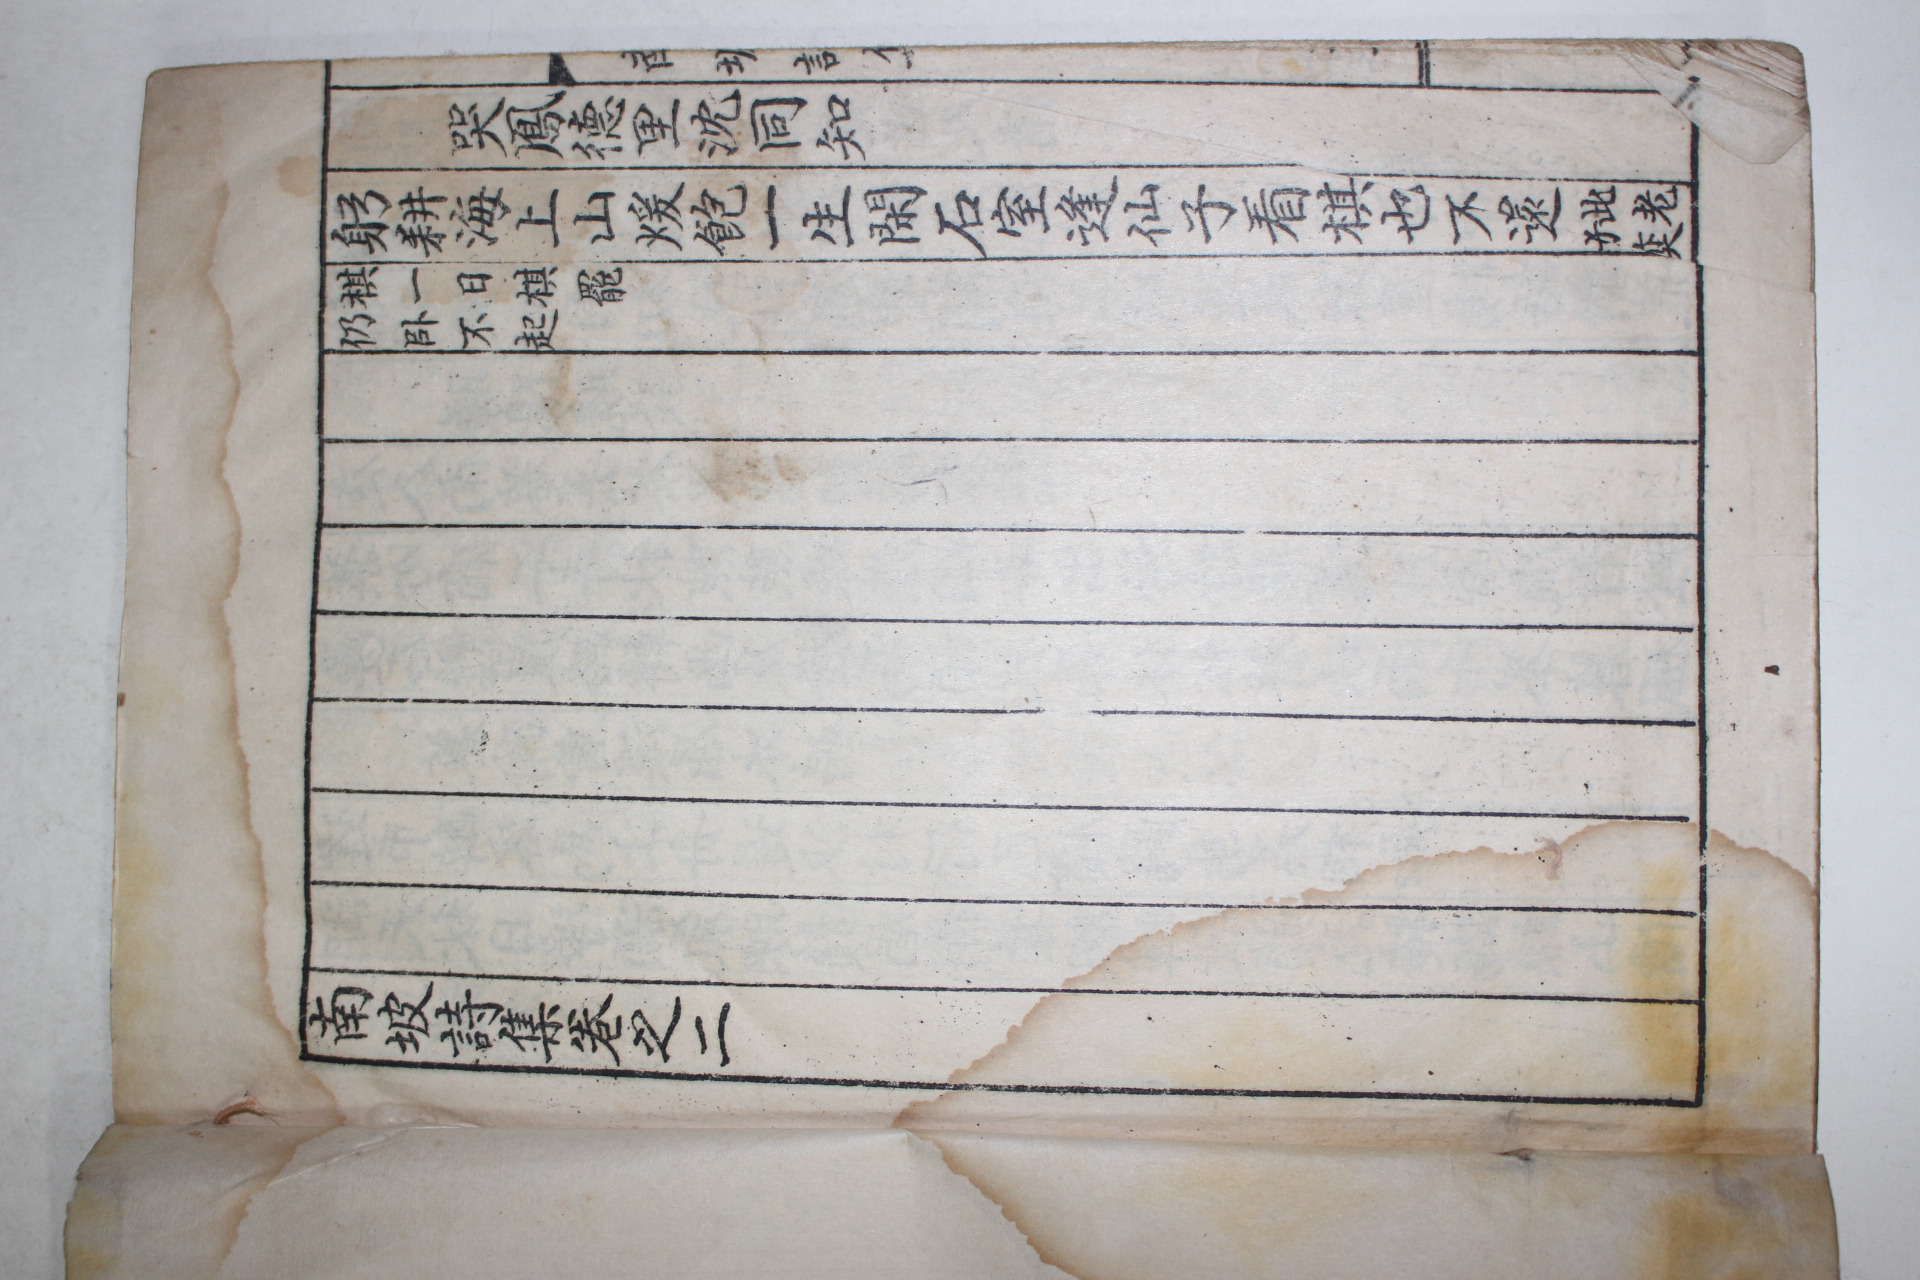 南坡詩集
哭鳳德里沈同知
躬耕海上山煖飽一生閑石室逢仙子看棋也不還
此老
奕
棋一日棋罷
仍卧不起
南坡詩集卷之二